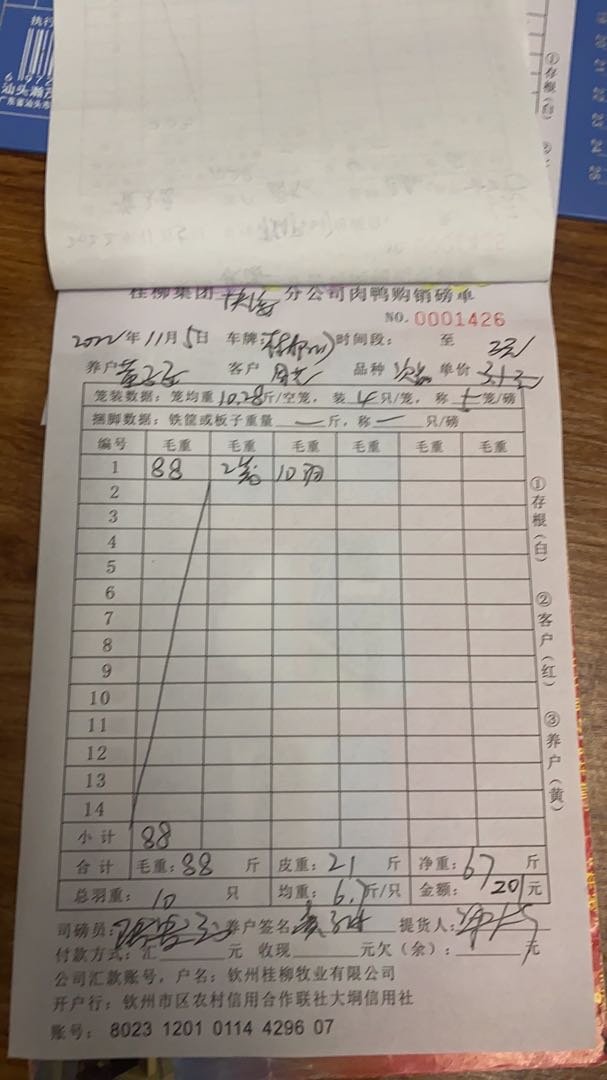 执行
6 972
汕头瀚茂
广东省汕头市
①存根(白)
19
20
21
22
23
24
25
桂柳集团 钦港 分公司肉鸭购销磅单
NO. 0001426
2022年11月5日 车牌: 时间段: 至
养户 客户 品种 次品 单价 3.1元
笼装数据: 笼均重10.28斤/空笼, 装4只/笼, 称 笼/磅
捆脚数据: 铁筐或板子重量 — 斤, 称 — 只/磅
编号 毛重 毛重 毛重 毛重 毛重 毛重
1 88 2笼 10羽
2
3
4
5
6
7
8
9
10
11
12
13
14
小计 88
合计 毛重: 88 斤 皮重: 21 斤 净重: 67 斤
总羽重: 10 只 均重: 6.7斤/只 金额: 201元
司磅员: 养户签名: 提货人:
付款方式: 汇 元 收现 元欠(余): 元
公司汇款账号, 户名: 钦州桂柳牧业有限公司
开户行: 钦州市区农村信用合作联社大垌信用社
账号: 8023 1201 0114 4296 07
①存根(白)
②客户(红)
③养户(黄)